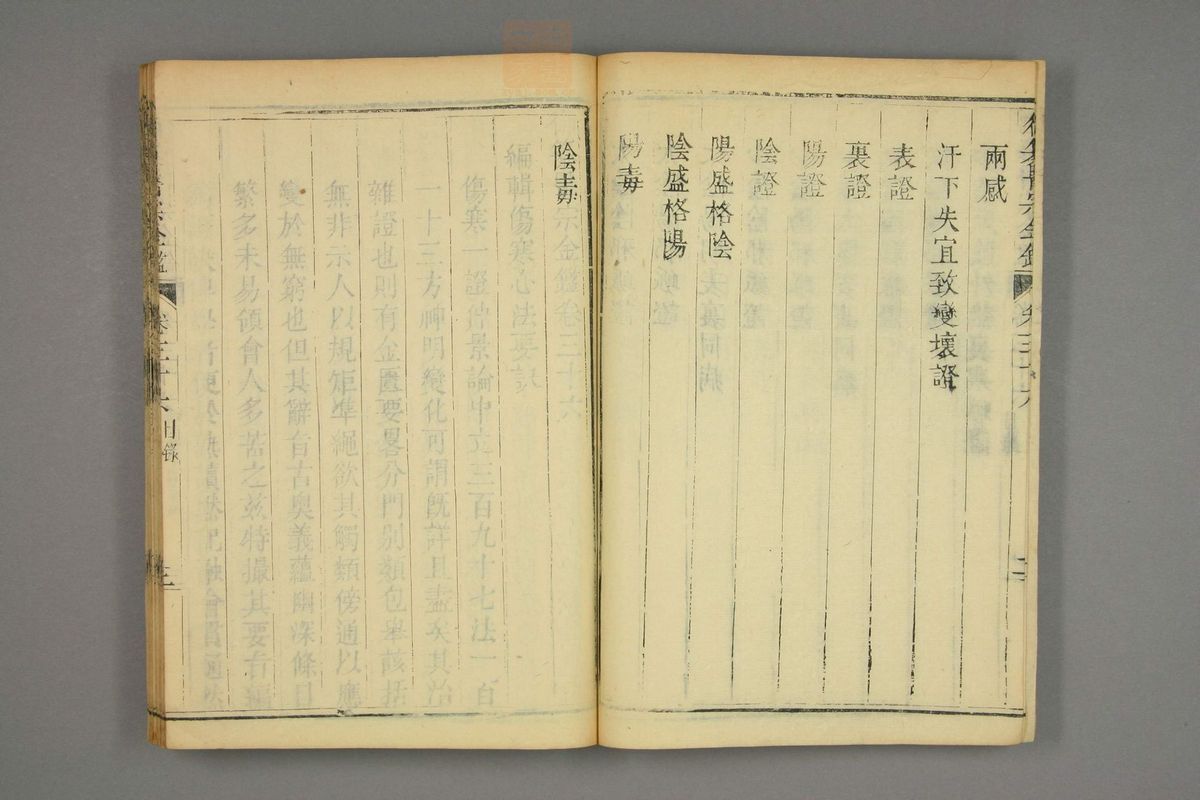 兩感
汗下失宜致變壞證
表證
裏證
陽證
陰證
陽盛格陰
陰盛格陽
陽毒
二
陰毒
宗金鑑卷三十六
編輯傷寒心法要訣
傷寒一證仲景論中立三百九十七法一百
一十三方神明變化可謂旣詳且盡矣其治
雜證也則有金匱要畧分門别類包舉該括
無非示人以規矩準繩欲其觸類傍通以應
變於無窮也但其辭旨古奥義蘊幽深條目
繁多未易領會人多苦之兹特撮其要旨編
宗金鑑
卷三十六目錄
三